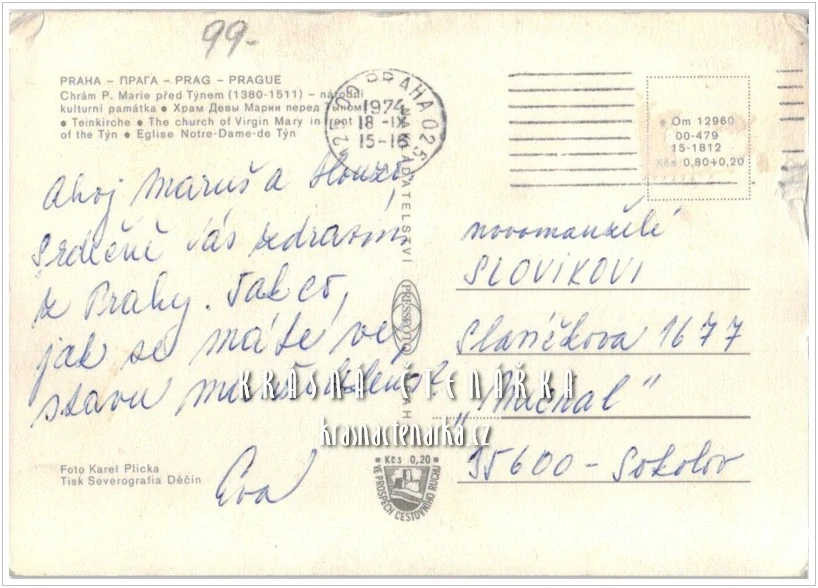 99.-
PRAHA – ПРАГА – PRAG – PRAGUE
Chrám P. Marie před Týnem (1380-1511) – národní
kulturní památka ● Храм Девы Марии перед Тыном
● Teinkirche ● The church of Virgin Mary in front
of the Týn ● Eglise Notre-Dame-de Týn
PRAHA 025
1974
18 -IX
15-16
● Om 12960
00-479
15-1812
Kčs 0,80+0,20
Ahoj Maruš a
Srdečně Vás zdravím
z Prahy. Tak co,
jak se máte ve
stavu
Eva
NAKLADATELSTVÍ PRESSFOTO PRAHA
novomanželé
SLOVIKOVI
Slavíčkova 1677
35600 - Sokolov
KRÁSNÁ ČTENÁŘKA
krasnactenarka.cz
Foto Karel Plicka
Tisk Severografia Děčín
● Kčs 0,20 ●
VE PROSPĚCH CESTOVNÍHO RUCHU